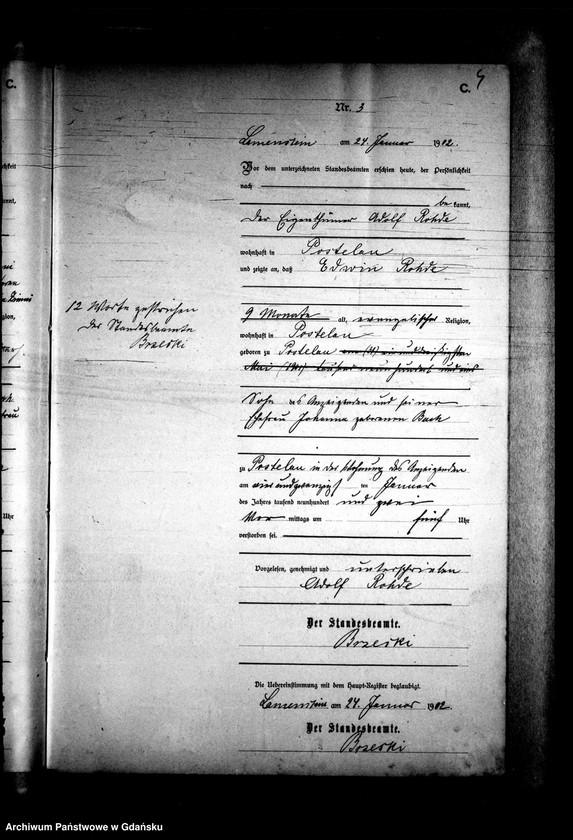 C.
C.
Nr. 3
am 24. Januar 1902.
Vor dem unterzeichneten Standesbeamten erschien heute, der Persönlichkeit
nach
be kannt,
der Eigenthümer Adolf Rohde
wohnhaft in Postelau
und zeigte an, daß Edwin Rohde
9 Monate alt, evangelischer Religion,
wohnhaft in Postelau
geboren zu Postelau am (31) ein und dreißigsten
Mai (1901) tausend neunhundert und eins
Sohn des Anzeigenden und seiner
Ehefrau Johanna geborenen Bach
zu Postelau in der Wohnung des Anzeigenden
am vier und zwanzigsten Januar
des Jahres tausend neunhundert und zwei
Vor mittags um fünf Uhr
verstorben sei.
Vorgelesen, genehmigt und unterschrieben
Adolf Rohde
Der Standesbeamte.
Brzeski
Die Uebereinstimmung mit dem Haupt-Register beglaubigt.
am 24. Januar 1902.
Der Standesbeamte.
Brzeski
12 Worte gestrichen
Der Standesbeamte
Brzeski
Archiwum Państwowe w Gdańsku